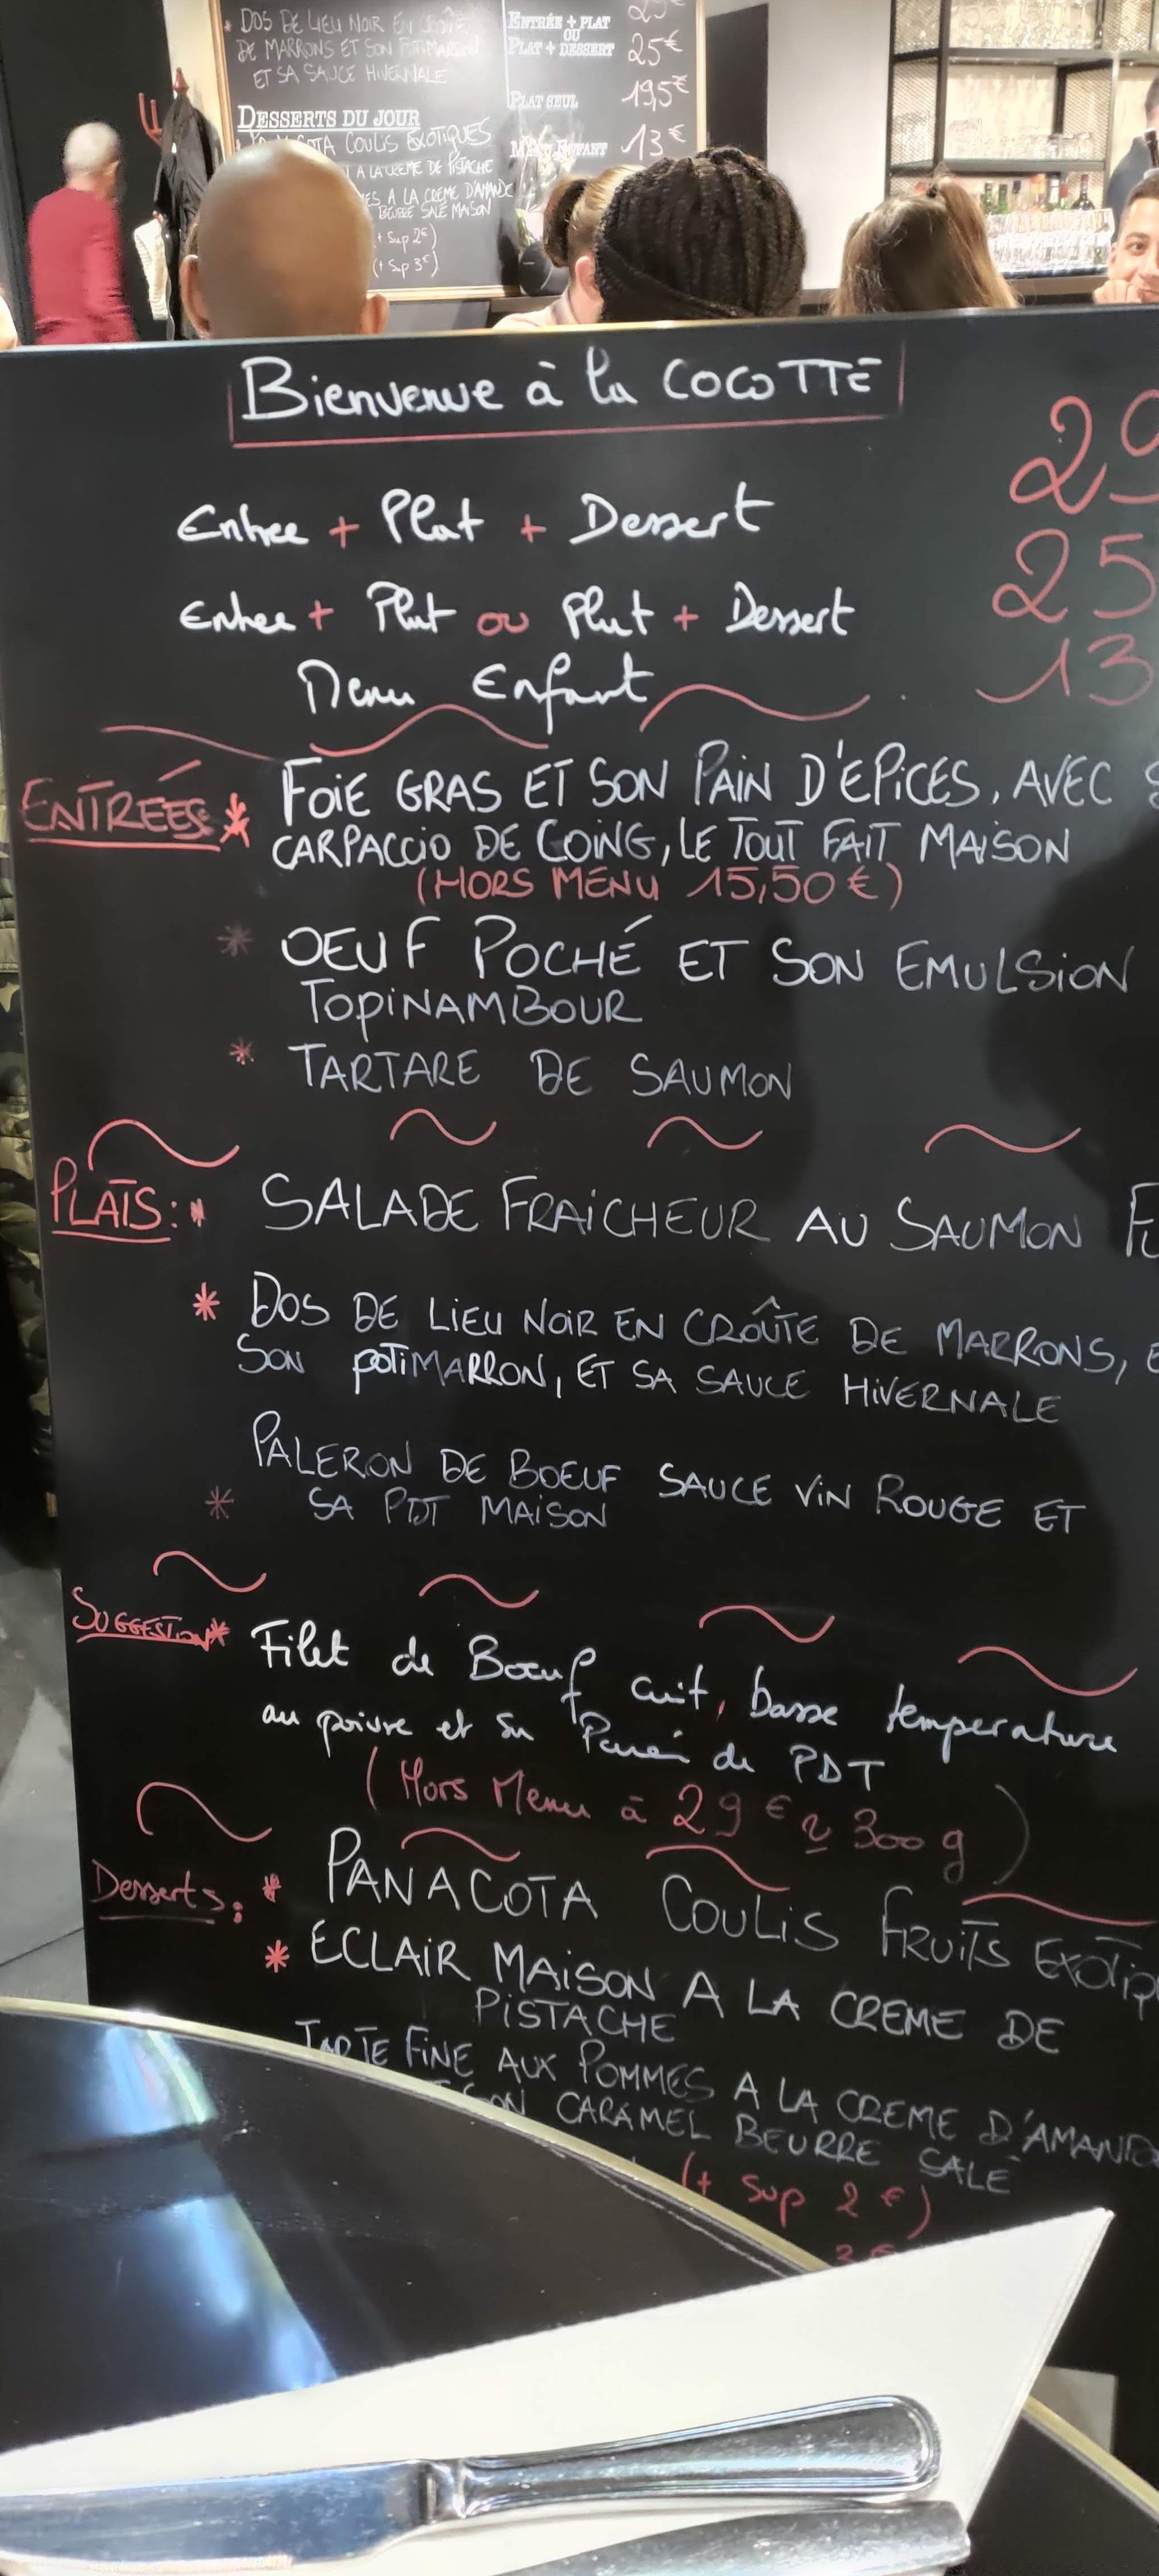 DOS DE LIEU NOIR EN CROÛTE
DE MARRONS ET SON POTIMARRON
ET SA SAUCE HIVERNALE
DESSERTS DU JOUR
COTA COULIS EXOTIQUES
A LA CREME DE PISTACHE
MES A LA CREME D'AMANDE
BEURRE SALE MAISON
(+ Sup 2€)
(+ Sup 3€)
ENTRÉE + PLAT
OU
PLAT + DESSERT
25€
PLAT SEUL 19,5€
13€
Bienvenue à la COCOTTE
Entree + Plat + Dessert 29
Entree + Plat ou Plat + Dessert 25
Menu Enfant 13
ENTRÉES: * FOIE GRAS ET SON PAIN D'EPICES, AVEC
CARPACCIO DE COING, LE TOUT FAIT MAISON
(HORS MENU 15,50€)
* OEUF POCHÉ ET SON EMULSION
TOPINAMBOUR
* TARTARE DE SAUMON
PLATS: * SALADE FRAICHEUR AU SAUMON FU
* DOS DE LIEU NOIR EN CROÛTE DE MARRONS, E
SON POTIMARRON, ET SA SAUCE HIVERNALE
PALERON DE BOEUF SAUCE VIN ROUGE ET
* SA PDT MAISON
SUGGESTION * Filet de Bœuf cuit, basse temperature
au poivre et sa de PDT
(Hors Menu à 29€ 300g)
Desserts: * PANACOTA COULIS FRUITS EXOTIQ
* ECLAIR MAISON A LA CREME DE
PISTACHE
TARTE FINE AUX POMMES A LA CREME D'AMAND
SON CARAMEL BEURRE SALE
(+ Sup 2€)
3€